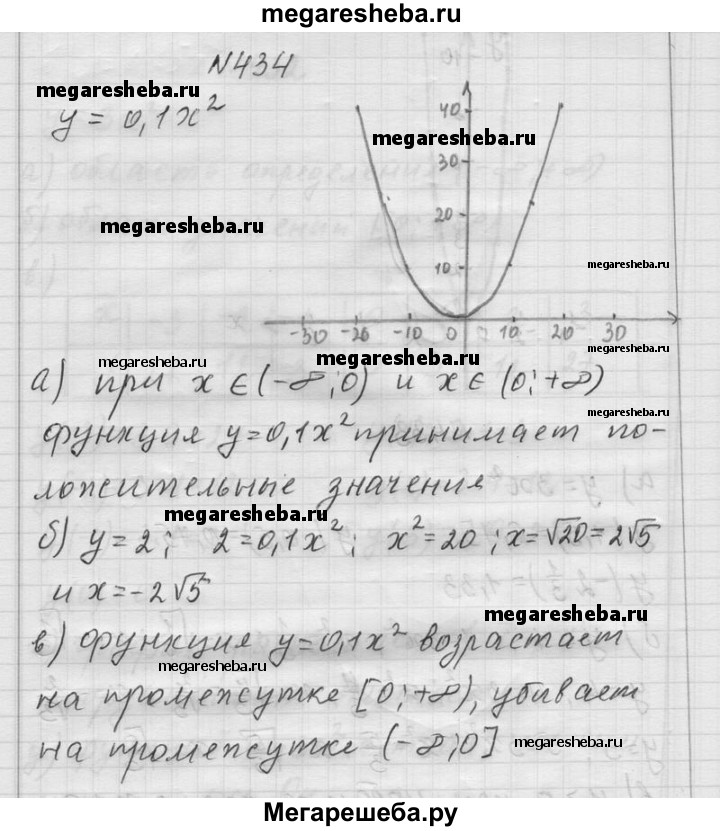 megaresheba.ru
N434
megaresheba.ru
y = 0,1x²
megaresheba.ru
megaresheba.ru
megaresheba.ru
40
30
20
10
-30 -20 -10 0 10 20 30
megaresheba.ru
megaresheba.ru
megaresheba.ru
а) при x ∈ (-∞; 0) и x ∈ (0; +∞)
функция y=0,1x² принимает по-
ложительные значения
megaresheba.ru
б) y=2; 2=0,1x²; x²=20; x=√20=2√5
и x=-2√5
megaresheba.ru
в) функция y=0,1x² возрастает
megaresheba.ru
на промежутке [0; +∞), убывает
на промежутке (-∞; 0]
megaresheba.ru
Мегарешеба.ру